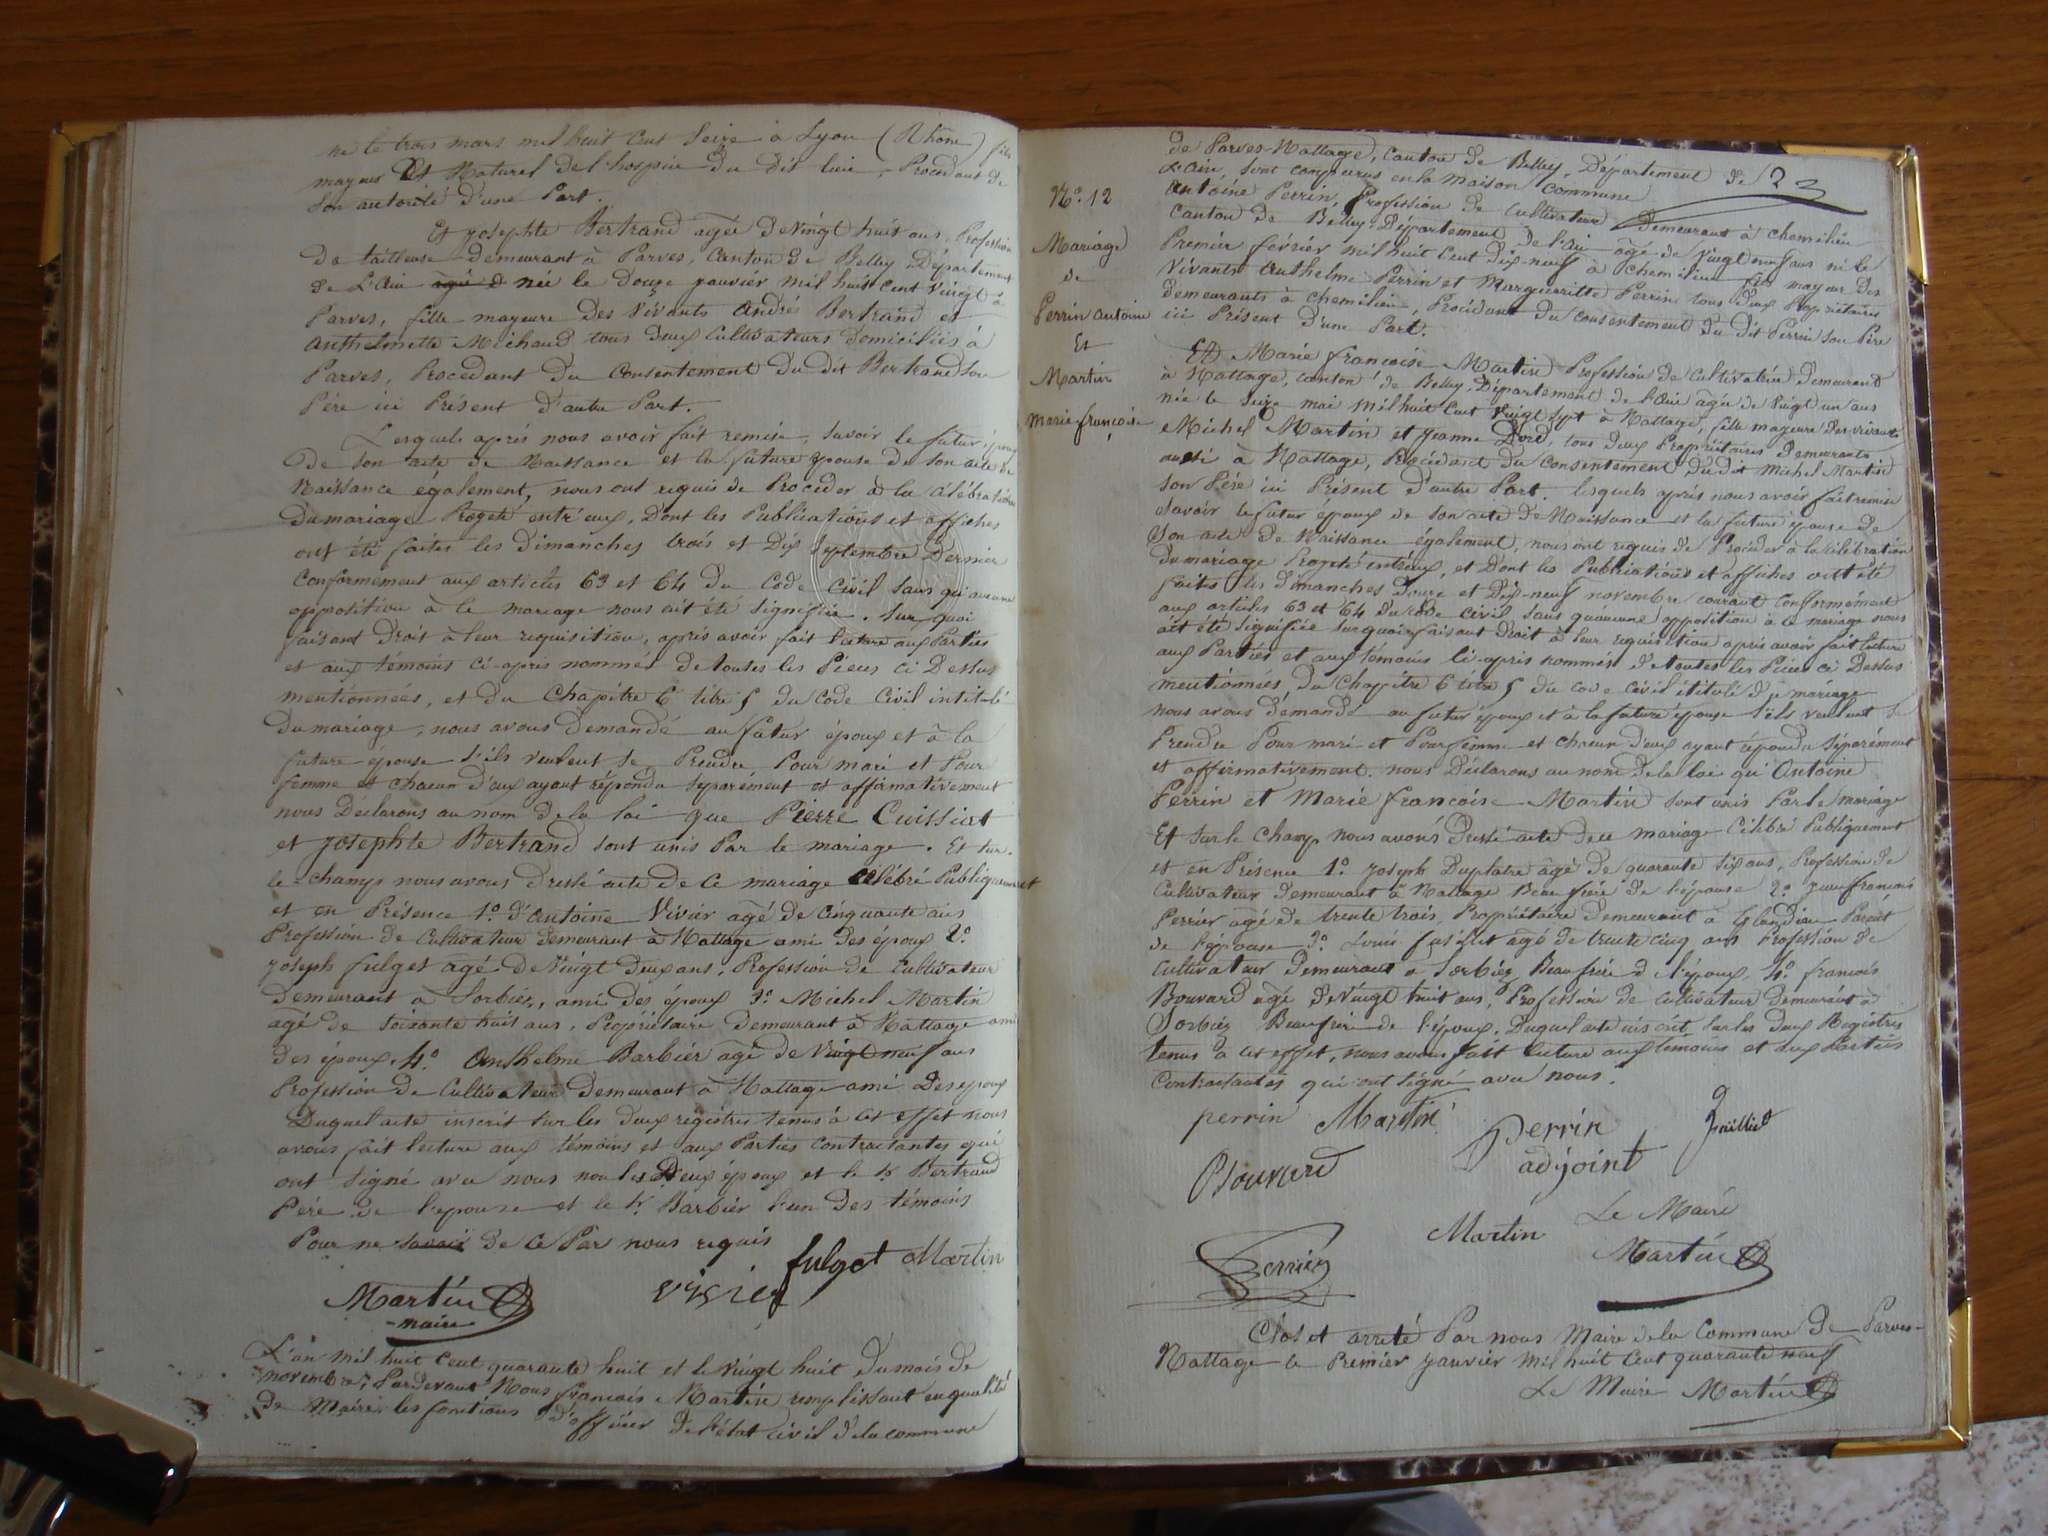 né le trois mars mil huit cent seize à Lyon (Rhône) fils
mageur Et Naturel de l'hospice du dit lieu, Procédant de
son autorité d'une Part.
Et josephte Bertrand agée de vingt huit ans, Profession
de tailleuse demeurant à Parves, Canton de Belley Département
de L'Ain née le douze janvier mil huit cent vingt à
Parves, fille mageure des vivants André Bertrand et
Anthelmette Michaud tous deux cultivateurs domiciliés à
Parves, Procédant du Consentement du dit Bertrand son
Père ici Présent d'autre Part.
Lesquels après nous avoir fait remise, savoir le futur époux
de son acte de Naissance et la future épouse de son acte de
Naissance également, nous ont requis de Procéder à la célébration
du mariage Projeté entr'eux, dont les Publications et affiches
ont été faites les dimanches trois et dix septembre dernier
Conformement aux articles 63 et 64 du Code Civil sans qu'aucune
opposition à le mariage nous ait été signifiée. Sur quoi
faisant droit à leur requisition, après avoir fait lecture aux Parties
et aux témoins ci-après nommés de toutes les Pièces ci Dessus
mentionnées, et du Chapitre 6 titre 5 du Code Civil intitulé
du mariage, nous avons demandé au futur époux et à la
future épouse s'ils veulent se Prendre Pour mari et Pour
femme et chacun d'eux ayant répondu séparément et affirmativement
nous Déclarons au nom de la loi que Pierre Cuissiat
et josephte Bertrand sont unis Par le mariage. Et sur
le champ nous avons dressé acte de ce mariage célébré Publiquement
et en Présence 1º d'Antoine Vivier agé de cinquante ans
Profession de Cultivateur demeurant à Nattage ami des époux 2º
joseph fulget agé de vingt deux ans, Profession de cultivateur
demeurant à Sorbiez, ami des époux 3º Michel Martin
agé de soixante huit ans, Propriétaire demeurant à Nattage ami
des époux. 4º Anthelme Barbier agé de vingt neuf ans
Profession de Cultivateur demeurant à Nattage ami des époux
Duquel acte inscrit sur les deux registres tenus à cet effet nous
avons fait lecture aux témoins et aux Parties contractantes qui
ont signé avec nous non les Deux époux et le sr Bertrand
Père de l'épouse et le sr Barbier l'un des témoins
Pour ne savoir de ce Par nous requis
fulget Martin
vivier
Martin
maire
L'an mil huit cent quarante huit et le vingt huit du mois de
novembre, Pardevant Nous françois Martin remplissant en qualité
de Maire les fonctions d'officier de l'état civil de la commune
de Parves-Nattage, canton de Belley, Département de
L'Ain, sont comparus en la maison commune
Nº 12
Mariage
de
Perrin Antoine
Et
Martin
marie françoise
Antoine Perrin, Profession de cultivateur demeurant à chemilieu
Canton de Belley Département de l'Ain agé de vingt neuf ans né le
Premier février mil huit cent dix-neuf à chemilieu fils mageur des
vivants Anthelme Perrin et Marguerritte Perrin tous deux Propriétaires
demeurants à chemilieu, Procédant du consentement du dit Perrin son Père
ici Présent d'une Part.
Et Marie françoise Martin Profession de cultivatrice demeurant
à Nattage, canton de Belley, Département de l'Ain agée de vingt un ans
née le seize mai mil huit cent vingt sept à Nattage, fille mageure des vivants
Michel Martin et jeanne tous deux Propriétaires demeurants
aussi à Nattage, Procédant du consentement du dit Michel Martin
son Père ici Présent d'autre Part. lesquels après nous avoir fait remise
savoir le futur époux de son acte de Naissance et la future épouse de
son acte de Naissance également, nous ont requis de Procéder à la célébration
du mariage Projeté entr'eux, et dont les Publications et affiches ont été
faites les dimanches douze et dix-neuf novembre courant conformément
aux articles 63 et 64 du code civil sans qu'aucune opposition à ce mariage nous
ait été signifiée sur quoi faisant droit à leur requisition après avoir fait lecture
aux Parties et aux témoins ci-après nommés de toutes les Pièces ci Dessus
mentionnées, du Chapitre 6 titre 5 du code civil ititulé du mariage
nous avons demandé au futur époux et à la future épouse s'ils veulent se
Prendre Pour mari et Pour femme et chacun d'eux ayant répondu séparément
et affirmativement. nous Déclarons au nom de la loi qu'Antoine
Perrin et Marie françoise Martin sont unis Par le mariage
Et sur le champ nous avons dressé acte de ce mariage célébré Publiquement
et en Présence 1º joseph Duplatre agé de quarante six ans, Profession de
Cultivateur demeurant à Nattage Beau frère de l'épouse 2º françois
Perrier agé de trente trois, Propriétaire demeurant à Glandieu Parent
de l'épouse 3º Louis agé de trente cinq ans Profession de
Cultivateur Demeurant à Sorbiez Beau frère de l'époux, 4º françois
Bouvard agé de vingt huit ans, Profession de cultivateur demeurant à
Sorbiez Beau frère de l'époux. Duquel acte inscrit sur les deux Registres
tenus à cet effet, nous avons fait lecture aux témoins et aux Parties
Contractantes qui ont signé avec nous.
perrin Martin Perrin
adjoint
Bouvard
Martin Le Maire
Perrier Martin
Clos et arreté Par nous Maire de la Commune de Parves-
Nattage le Premier janvier mil huit cent quarante neuf
Le Maire Martin